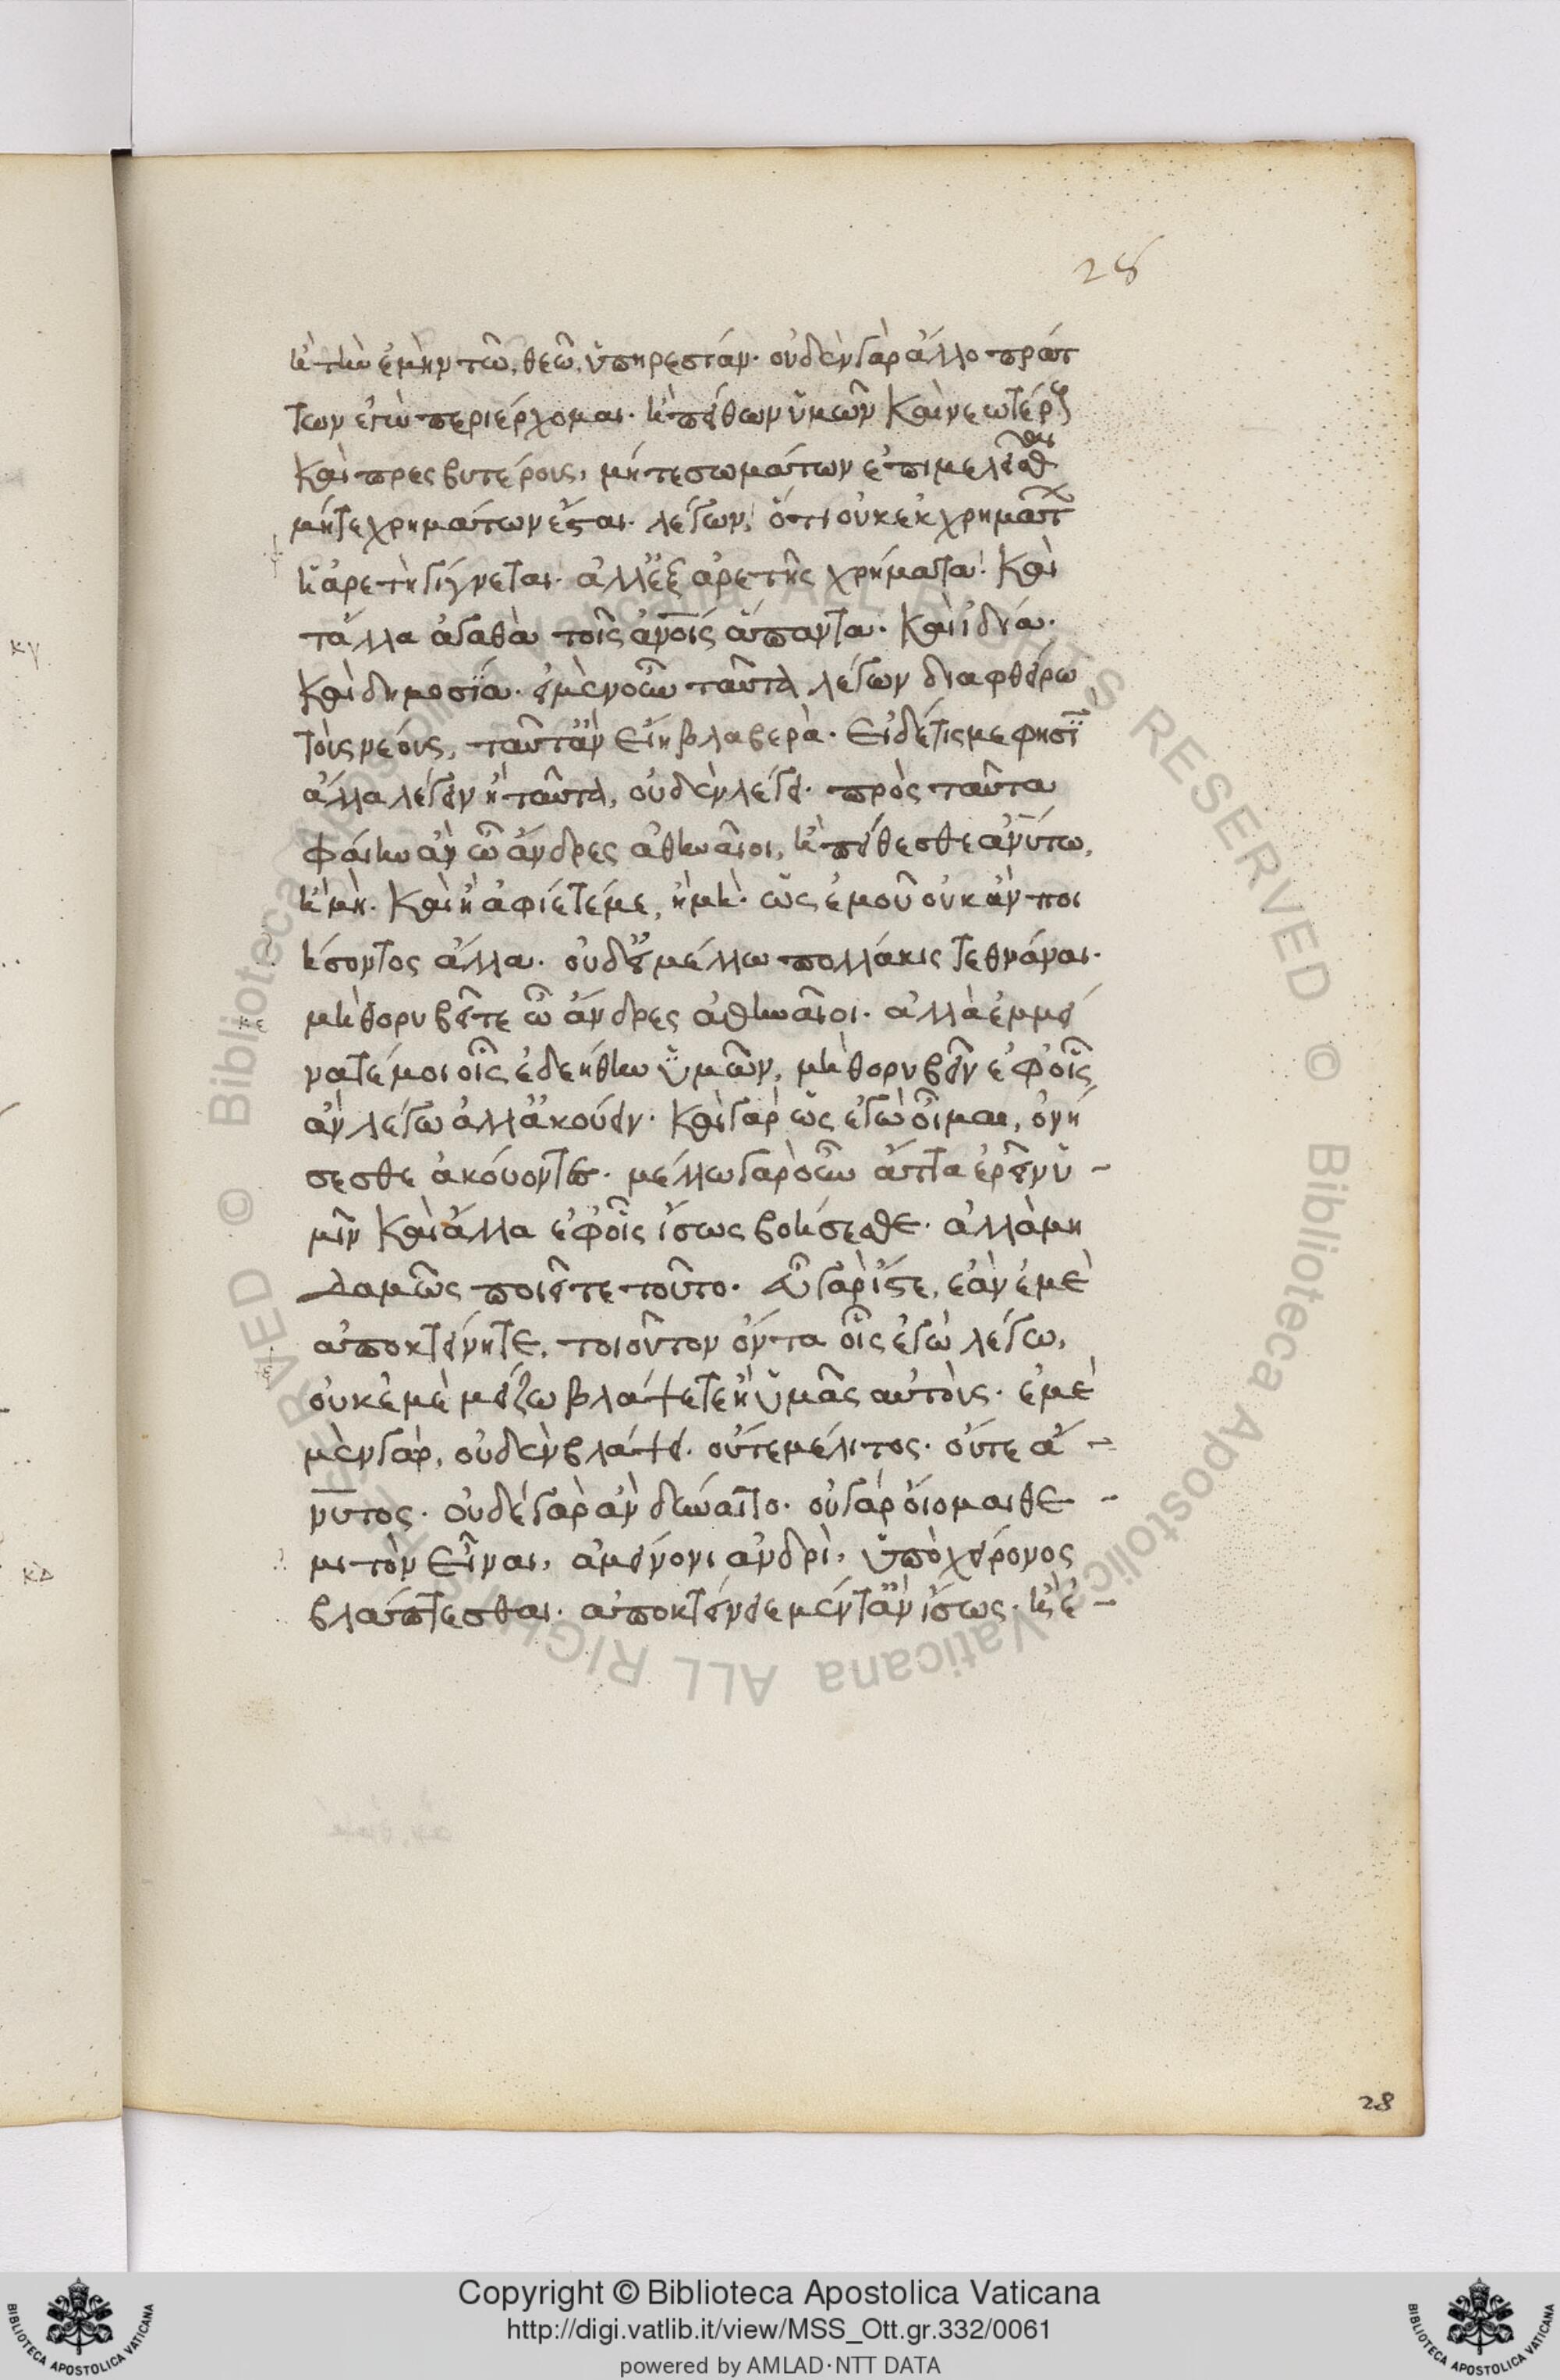 28
ἢ τὴν ἐμὴν τῶ, θεῶ, ὑπηρεσίαν. οὐδὲν γὰρ ἄλλο πράτ
των ἐγὼ περιέρχομαι. ἢ πείθων ὑμῶν καὶ νεωτέρους
καὶ πρεσβυτέρους, μήτε σωμάτων ἐπιμελεῖσθαι
μήτε χρημάτων εἶναι. λέγων, ὅτι οὐκ ἐκ χρημάτων
ἡ ἀρετὴ γίγνεται. ἀλλ' ἐξ ἀρετῆς χρήματα. καὶ
τἄλλα ἀγαθὰ τοῖς ἀνοις ἅπαντα. καὶ ἰδία.
καὶ δημοσία. εἰ μὲν οὖν ταῦτα λέγων διαφθείρω
τοὺς νέους, ταῦτ' ἂν εἴη βλαβερά. εἰ δέ τίς με φησὶ
ἄλλα λέγειν ἢ ταῦτα, οὐδὲν λέγει. πρὸς ταῦτα
φαίην ἂν ὦ ἄνδρες ἀθηναῖοι, ἢ πείθεσθε ἀνύτω,
ἢ μή. καὶ ἢ ἀφίετέ με, ἢ μή. ὡς ἐμοῦ οὐκ ἂν ποι
ήσοντος ἄλλα. οὐδ' εἰ μέλλω πολλάκις τεθνάναι.
μὴ θορυβεῖτε ὦ ἄνδρες ἀθηναῖοι. ἀλλὰ ἐμμεί
νατέ μοι οἷς ἐδεήθην ὑμῶν, μὴ θορυβεῖν ἐφ' οἷς
ἂν λέγω ἀλλ' ἀκούειν. καὶ γὰρ ὡς ἐγὼ οἶμαι, ὀνή
σεσθε ἀκούοντες. μέλλω γὰρ οὖν ἄττα ἐρεῖν ὑ -
μῖν καὶ ἄλλα ἐφ' οἷς ἴσως βοήσεσθε. ἀλλὰ μη
δαμῶς ποιεῖτε τοῦτο. εὖ γὰρ ἴστε, ἐὰν ἐμὲ
ἀποκτείνητε, τοιοῦτον ὄντα οἷς ἐγὼ λέγω,
οὐκ ἐμὲ μείζω βλάψετε ἢ ὑμᾶς αὐτούς. ἐμὲ
μὲν γὰρ, οὐδὲν βλάψει. οὔτε μέλιτος. οὔτε ἄ -
νυτος. οὐδὲ γὰρ ἂν δύναιτο. οὐ γὰρ οἴομαι θε -
μιτὸν εἶναι, ἀμείνονι ἀνδρὶ, ὑπὸ χείρονος
βλάπτεσθαι. ἀποκτείνειε μέντ' ἂν ἴσως. ἢ ἐ -
κγ
κε
κδ
28
Copyright © Biblioteca Apostolica Vaticana
http://digi.vatlib.it/view/MSS_Ott.gr.332/0061
powered by AMLAD·NTT DATA
BIBLIOTECA APOSTOLICA VATICANA
BIBLIOTECA APOSTOLICA VATICANA